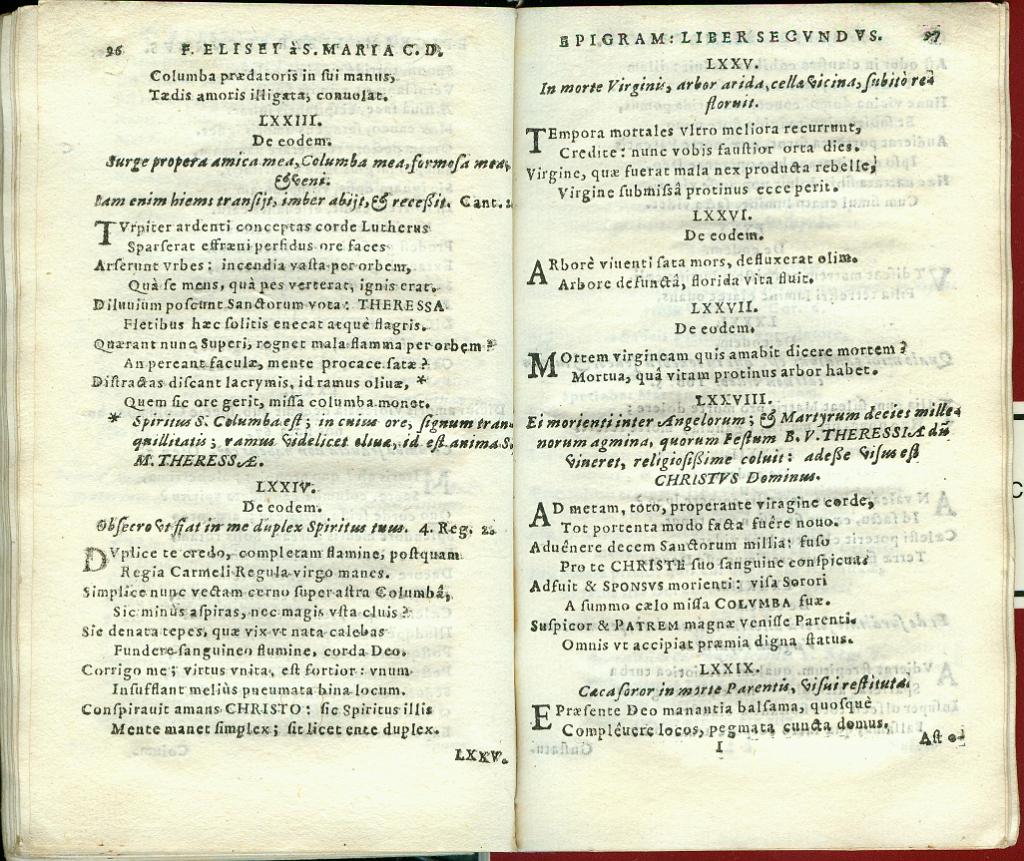 96 F. ELISEI à S. MARIA C. D.
Columba prædatoris in sui manus,
Tædis amoris illigata, conuolat.
LXXIII.
De eodem.
Surge propera amica mea, Columba mea, formosa mea,
& veni.
Iam enim hiems transijt, imber abijt, & recessit. Cant. 2
TVrpiter ardenti conceptas corde Lutherus
Sparserat effræni perfidus ore faces
Arserunt vrbes; incendia vasta per orbem,
Quà se mens, quà pes verterat, ignis erat.
Diluuium poscunt Sanctorum vota: THERESSA
Fletibus hæc solitis enecat atquè flagris.
Quærant nunc Superi, regnet mala flamma per orbem?
An pereant faculæ, mente procace satæ?
Distractas discant lacrymis, id ramus oliuæ, *
Quem sic ore gerit, missa columba monet.
* Spiritus S. Columba est; in cuius ore, signum tran-
quillitatis; ramus videlicet oliuæ, id est anima S.
M. THERESSÆ.
LXXIV.
De eodem.
Obsecro vt fiat in me duplex Spiritus tuus. 4. Reg. 2.
DVplice te credo, completam flamine, postquam
Regia Carmeli Regula virgo manes.
Simplice nunc vectam cerno super astra Columbâ,
Sic minùs aspiras, nec magis vsta cluis?
Sic denata tepes, quæ vix vt nata calebas
Fundere sanguineo flumine, corda Deo.
Corrigo me; virtus vnita, est fortior: vnum
Insufflant meliùs pneumata bina locum.
Conspirauit amans CHRISTO: sic Spiritus illis
Mente manet simplex; sit licet ente duplex.
LXXV.
EPIGRAM: LIBER SECVNDVS. 97
LXXV.
In morte Virginis, arbor arida, cellæ vicina, subitò re-
floruit.
TEmpora mortales vltro meliora recurrunt,
Credite: nunc vobis faustior orta dies.
Virgine, quæ fuerat mala nex producta rebelle,
Virgine submissâ protinus ecce perit.
LXXVI.
De eodem.
ARborè viuenti sata mors, defluxerat olim.
Arbore defunctâ, florida vita fluit.
LXXVII.
De eodem.
MOrtem virgineam quis amabit dicere mortem?
Mortua, quâ vitam protinus arbor habet.
LXXVIII.
Ei morienti inter Angelorum; & Martyrum decies mille-
norum agmina, quorum Festum B. V. THERESSIA dū
viueret, religiosissime coluit: adesse visus est
CHRISTVS Dominus.
AD metam, toto, properante viragine corde,
Tot portenta modo facta fuêre nouo.
Aduênere decem Sanctorum millia: fuso
Pro te CHRISTE suo sanguine conspicuas
Adfuit & SPONSVS morienti: visa Sorori
A summo cælo missa COLVMBA suæ.
Suspicor & PATREM magnæ venisse Parenti,
Omnis vt accipiat præmia digna status.
LXXIX.
Cæca soror in morte Parentis, visui restituta.
EPræsente Deo manantia balsama, quosquè
Complêuere locos, pegmata cuncta domus,
I Ast